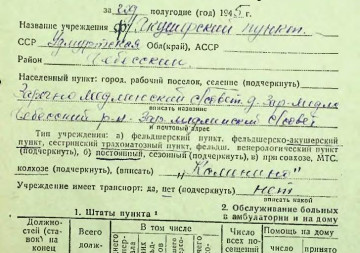 за 2ое полугодие (год) 1945 г.
Название учреждения ф/Акушерский пункт.
ССР Удмуртская Обл(край), АССР
Район Дебесский.
Населенный пункт: город, рабочий поселок, селение (подчеркнуть)
Заречно Медлинский с/совет д. Зар-Медла
вписать название
Дебесский р-н Зар-медлинский с/совет
и почтовый адрес
Тип учреждения: а) фельдшерский пункт, фельдшерско-акушерский
пункт, сестринский трахоматозный пункт, фельдш. венерологический пункт
(подчеркнуть), б) постоянный, сезонный (подчеркнуть), в) при совхозе, МТС,
колхозе (подчеркнуть), (вписать) "Калинина"
Учреждение имеет транспорт: да, нет (подчеркнуть) нет
вписать какой
1. Штаты пункта
2. Обслуживание больных
в амбулатории и на дому
Должно-
сти (ста-
вок) на
конец
Всего
долж-
В том числе
Число
всех по-
сещений
Помощь на дому
число
принято